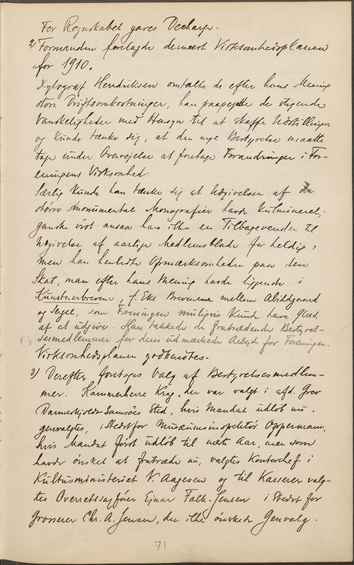 For Regnskabet gaves Decharge.
2) Formanden forelagde dernæst Virksomhedsplanen
for 1910.
Xylograf Hendriksen omtalte de efter hans Mening
store Driftsomkostninger, han paapegede de stigende
Vanskeligheder med Hensyn til at skaffe Udstillinger
og kunde tænke sig, at den nye Bestyrelse maatte
tage under Overvejelse at foretage Forandringer i For-
eningens Virksomhed.
Særlig kunde han tænke sig at Udgivelsen af de
større monumentale Monografier havde kulmineret,
ganske vist ansaa han ikke en Tilbagevenden til
Udgivelse af aarlige Medlemsblade for heldig;
men han henledte Opmærksomheden paa den
Skat, man efter hans Mening havde liggende i
Kunstnerbreve, f. Eks Brevene mellem Abildgaard
og Sergel, som Foreningen muligvis kunde have Glæde
af at udgive. Han takkede de fratrædende Bestyrel-
sesmedlemmer for deres udmærkede Arbejde for Foreningen.
Virksomhedsplanen godkendtes.
3) Derefter foretoges Valg af Bestyrelsesmedlem-
mer. Kammerherre Krag, der var valgt i afd. Grev
Danneskjold-Samsøes Sted, hvis Mandat udløb nu,
genvalgtes, i Stedet for Museumsinspektør Oppermann,
hvis Mandat først udløb til næste Aar, men som
havde ønsket at fratræde nu, valgtes Kontorchef i
Kultusministeriet V. Aagesen og til Kasserer valg-
tes Overretssagfører Ejnar Falk-Jensen i Stedet for
Grosserer Chr. A. Jensen, der ikke ønskede Genvalg.
71